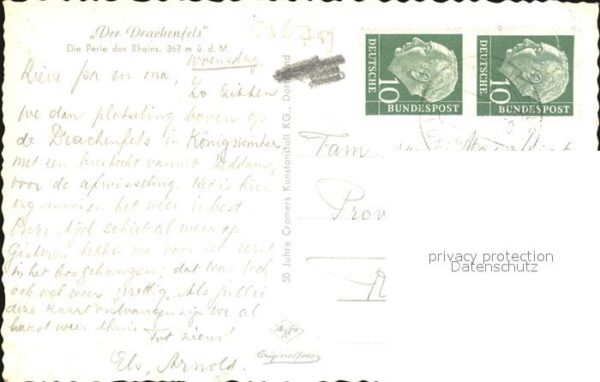 „Der Drachenfels"
Die Perle des Rheins. 367 m ü. d. M.
Woensdag
Lieve pa en ma,
Zo zitten
we dan plotseling boven op
de Drachenfels in Königswinter
met een
voor de afwisseling. Het is hier
het weer is best
Onze tijd schiet al weer op
Gisteren hebben we voor het eerst
in het bos gehangen, dat was toch
ook wel weer gezellig. Als jullie
deze kaart ontvangen zijn we al
haast weer thuis
Tot ziens!
Els, Arnold.
50 Jahre Cramers Kunstanstalt KG., Dortmund
Originalfoto
DEUTSCHE
BUNDESPOST
10
DEUTSCHE
BUNDESPOST
10
Fam.
Prov
privacy protection
Datenschutz